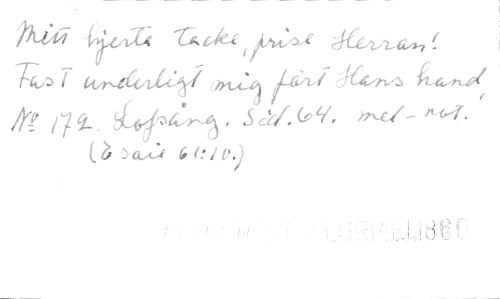 Mitt hjerta tacke, prise Herran!
Fast underligt mig fört Hans hand,
No 172. Lofsång. Sid. 64. mel-not.
(Esaie 61:10.)
1860